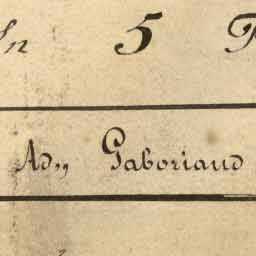 In 5
Ad,, Gaboriaud